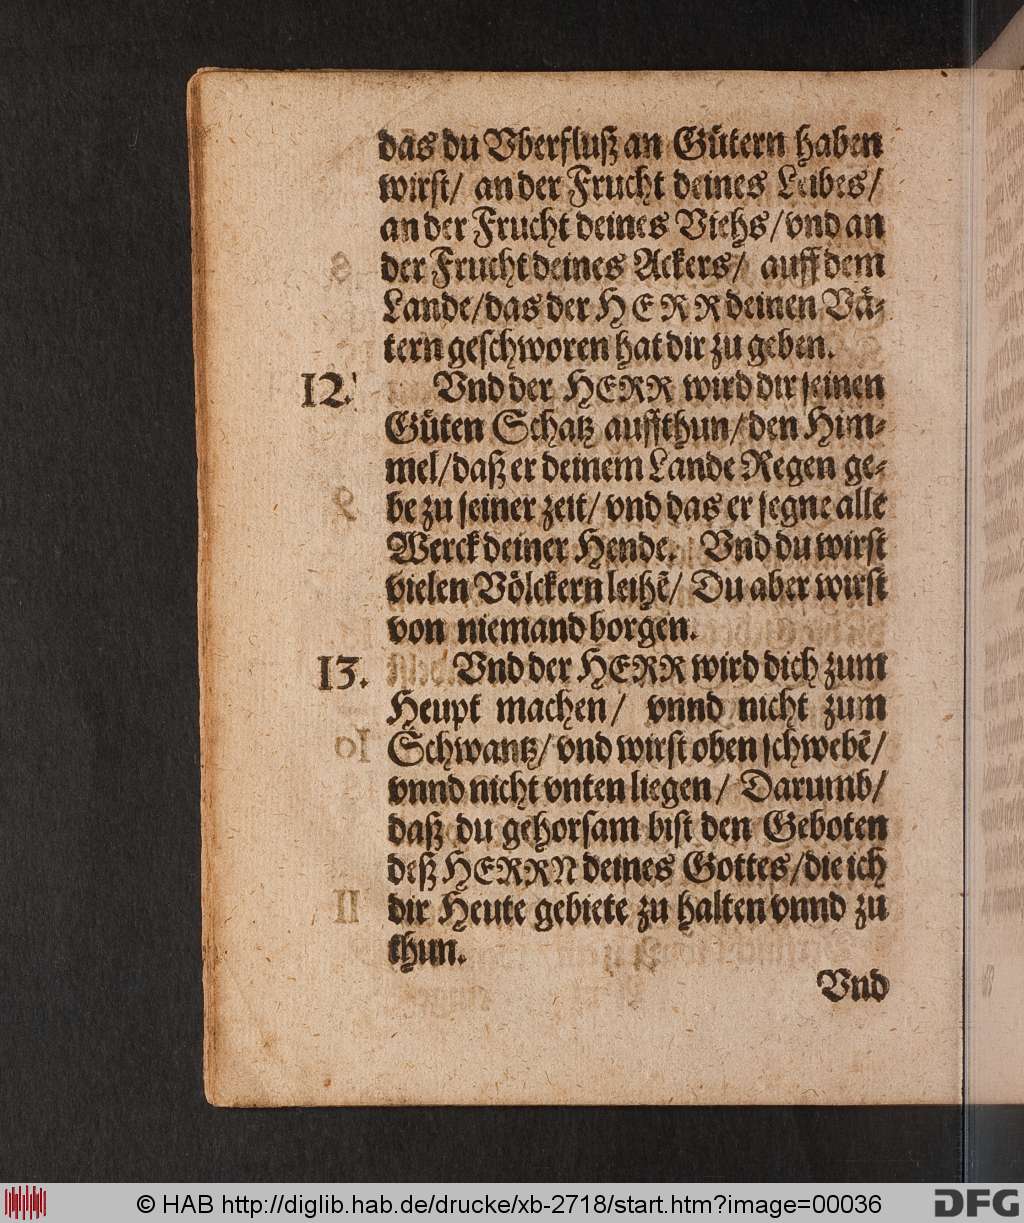 das du Vberfluß an Gütern haben
wirst/ an der Frucht deines Leibes/
an der Frucht deines Viehs/ vnd an
der Frucht deines Ackers/ auff dem
Lande/ das der HERR deinen Vä-
tern geschworen hat dir zu geben.
12. Vnd der HERR wird dir seinen
Güten Schatz auffthun/ den Him-
mel/ daß er deinem Lande Regen ge-
be zu seiner zeit/ vnd das er segne alle
Werck deiner Hende. Vnd du wirst
vielen Völckern leihē/ Du aber wirst
von niemand borgen.
13. Vnd der HERR wird dich zum
Heupt machen/ vnnd nicht zum
Schwantz/ vnd wirst oben schwebē/
vnnd nicht vnten liegen/ Darumb/
daß du gehorsam bist den Geboten
deß HERRN deines Gottes/ die ich
dir Heute gebiete zu halten vnnd zu
thun.
Vnd
© HAB http://diglib.hab.de/drucke/xb-2718/start.htm?image=00036
DFG